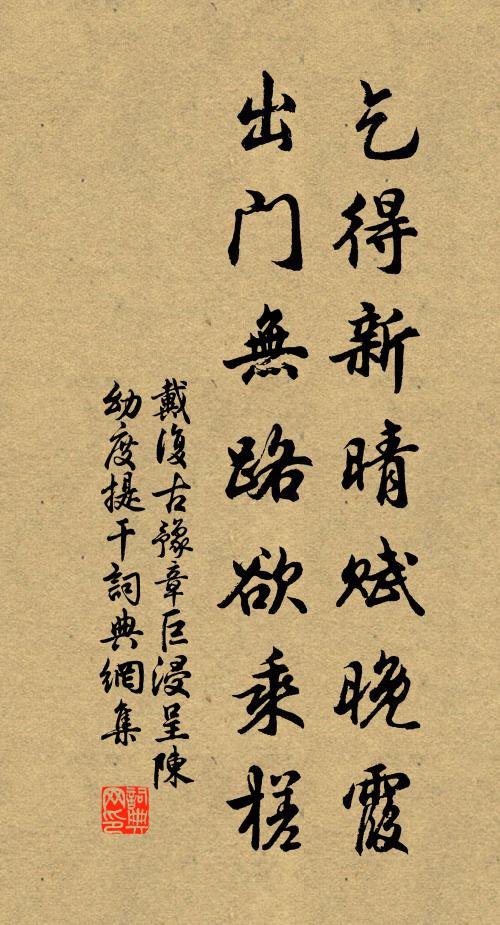 乞得新晴赋晚霞
出门無路欲乘槎
戴復古豫章巨浸呈陳
幼度提干詞典網集
詞典网印